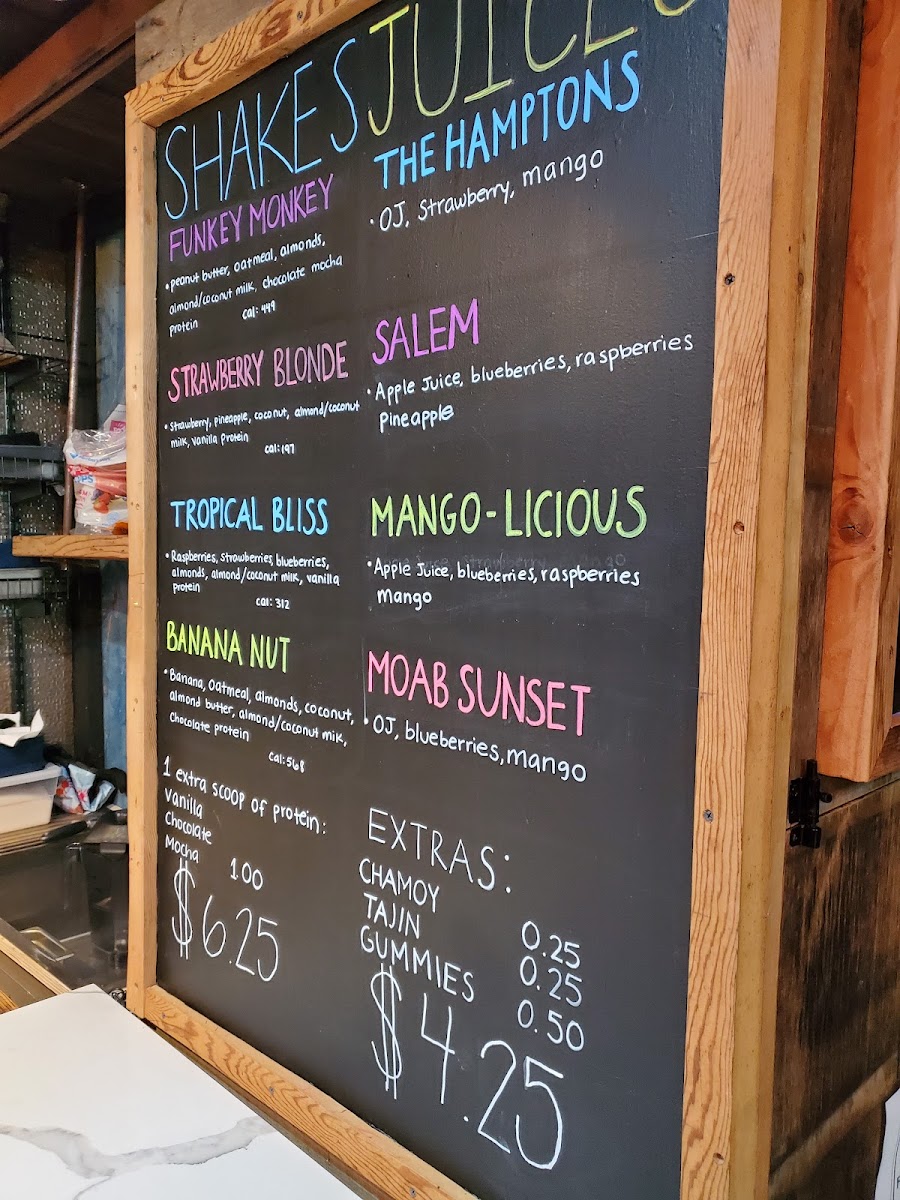 SHAKES
FUNKEY MONKEY
• peanut butter, oatmeal, almonds,
almond/coconut milk, chocolate mocha
protein
cal: 449
STRAWBERRY BLONDE
• Strawberry, pineapple, coconut, almond/coconut
milk, vanilla protein
cal: 197
TROPICAL BLISS
• Raspberries, strawberries, blueberries,
almonds, almond/coconut milk, vanilla
protein
cal: 312
BANANA NUT
• Banana, oatmeal, almonds, coconut,
almond butter, almond/coconut milk,
Chocolate protein
cal: 568
1 extra scoop of protein:
Vanilla
Chocolate
Mocha
1.00
$6.25
JUICES
THE HAMPTONS
• OJ, Strawberry, mango
SALEM
• Apple Juice, blueberries, raspberries
Pineapple
MANGO-LICIOUS
• Apple Juice, blueberries, raspberries
mango
MOAB SUNSET
• OJ, blueberries, mango
EXTRAS:
CHAMOY 0.25
TAJIN 0.25
GUMMIES 0.50
$4.25